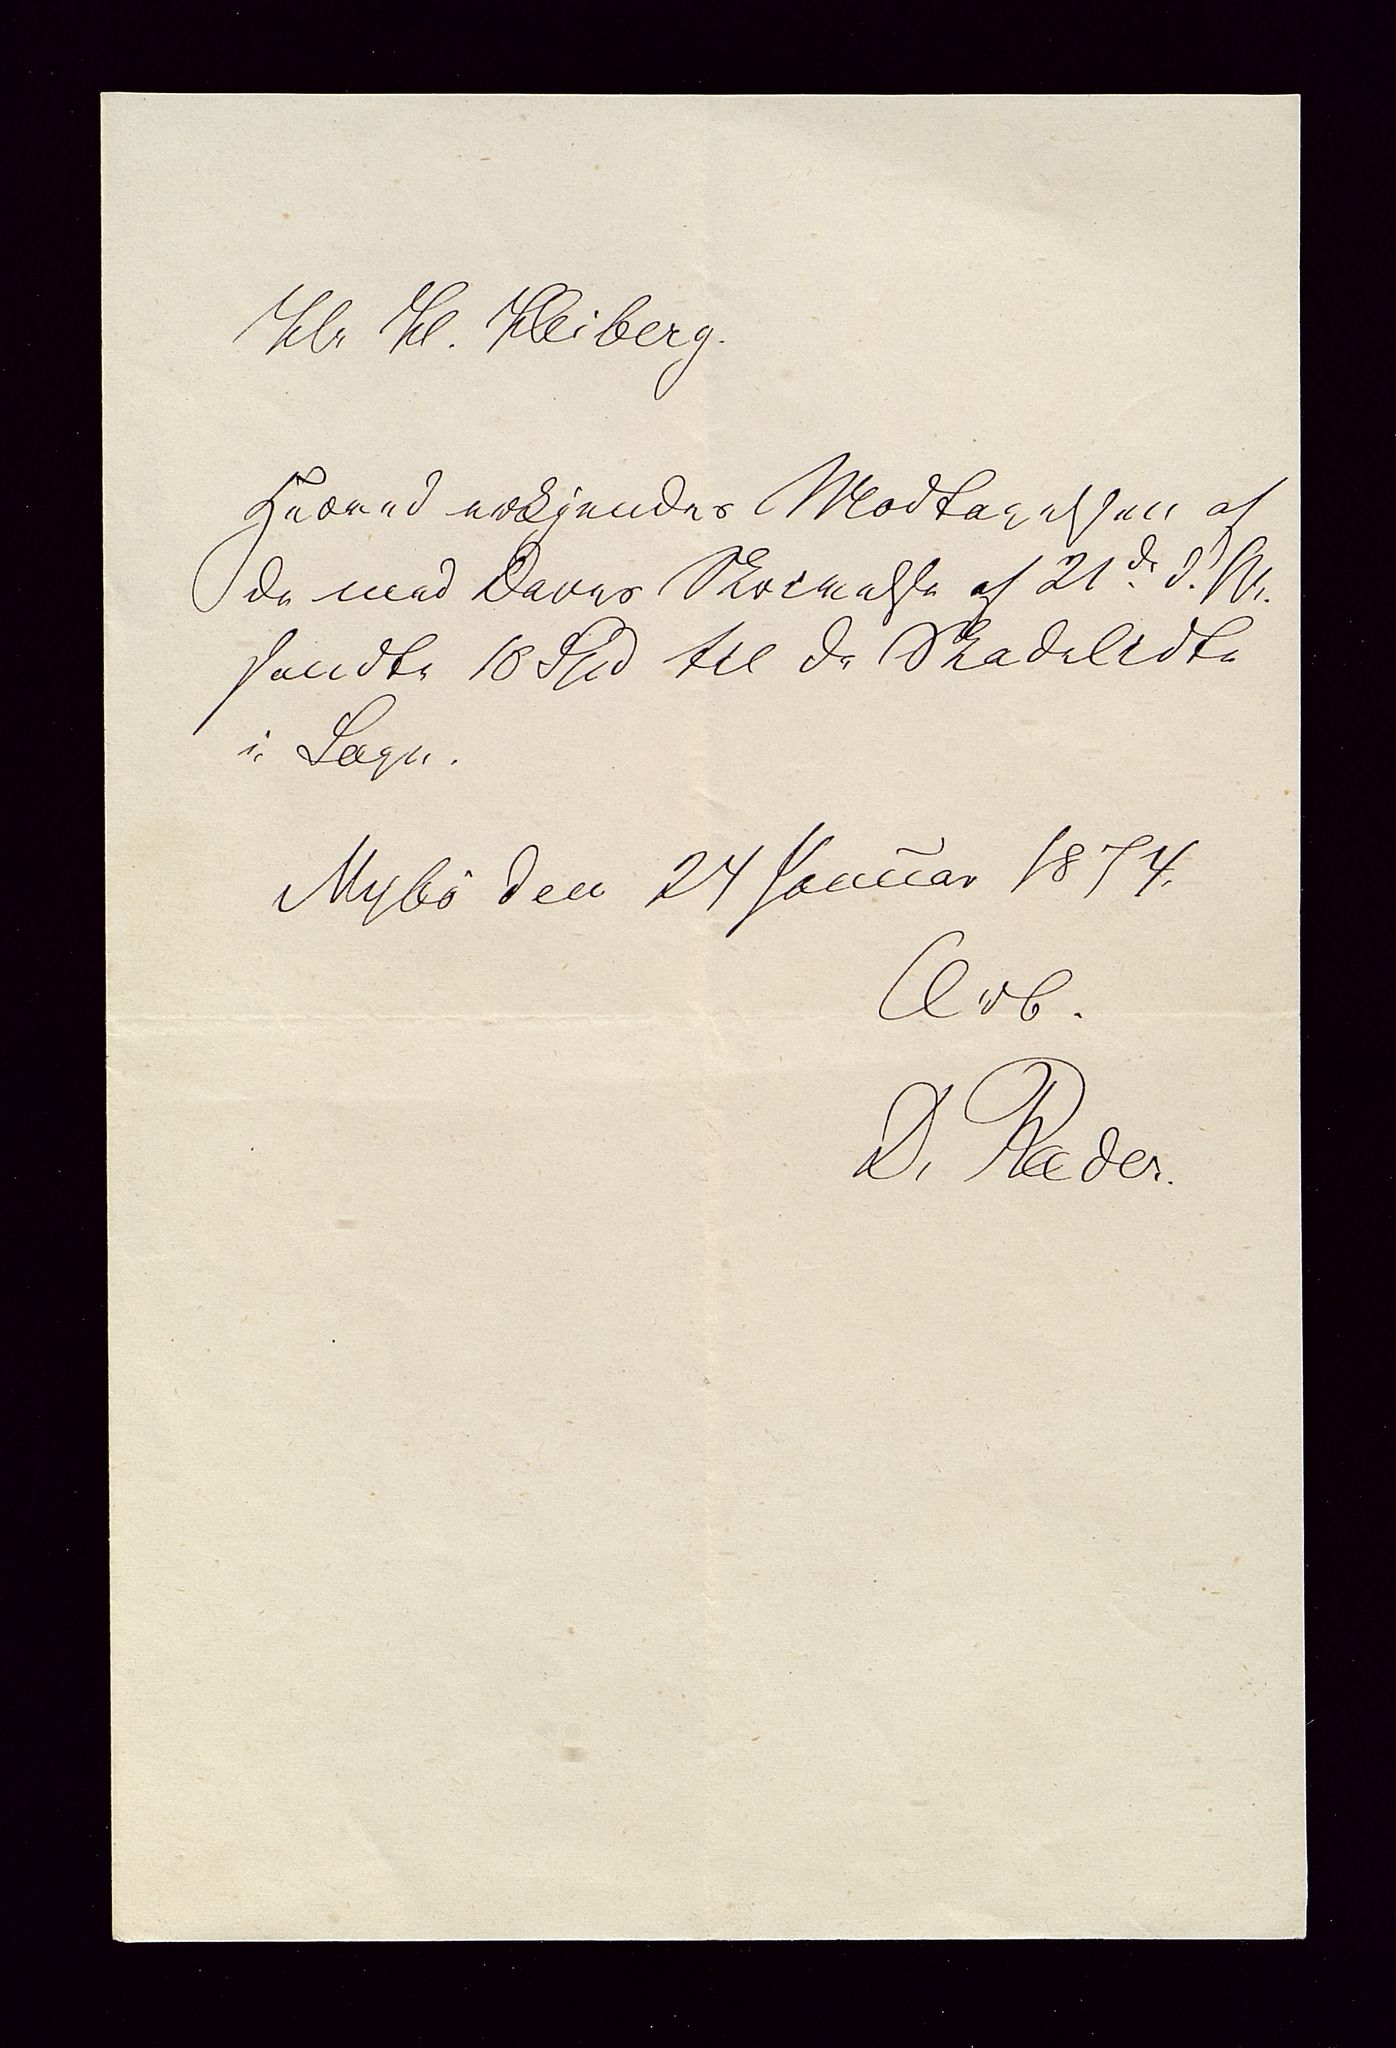 Hr. H. Heiberg.
Herved erkjendes Modtagelsen af
de med Deres Skrivelse af 21de d. M.
sendte 18 Spd til de Skadelidte
i Sogn.
Mybö den 24 Januar 1874.
Ærb.
D. Ræder.